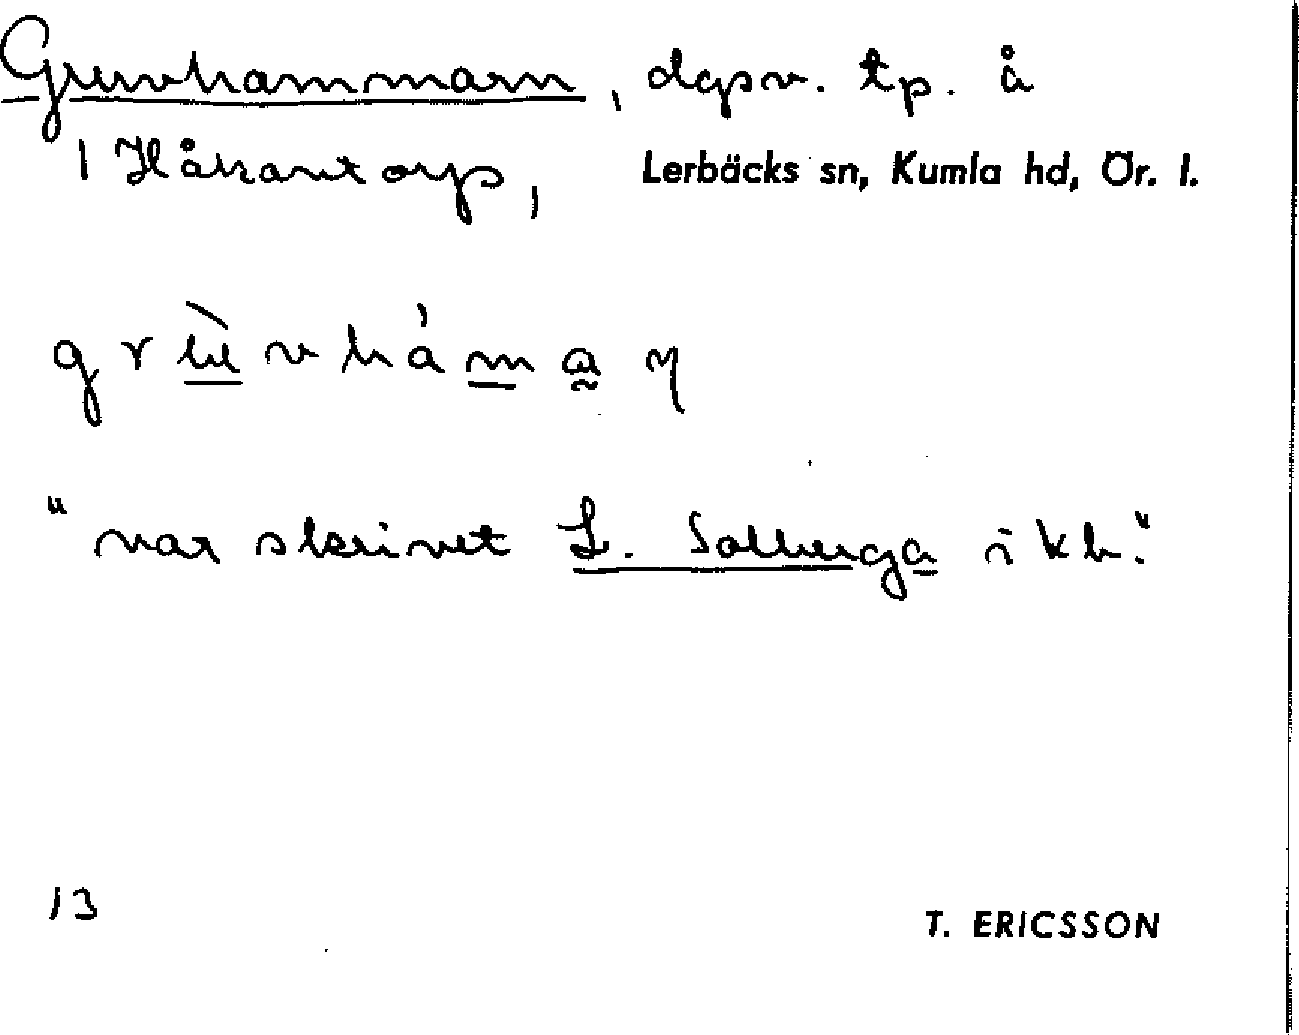 Gruvhammarn, dgsv. tp. å
1 Håkantorp, Lerbäcks sn, Kumla hd, Ör. l.
"var skrivet L. Solberga i kb."
13
T. ERICSSON